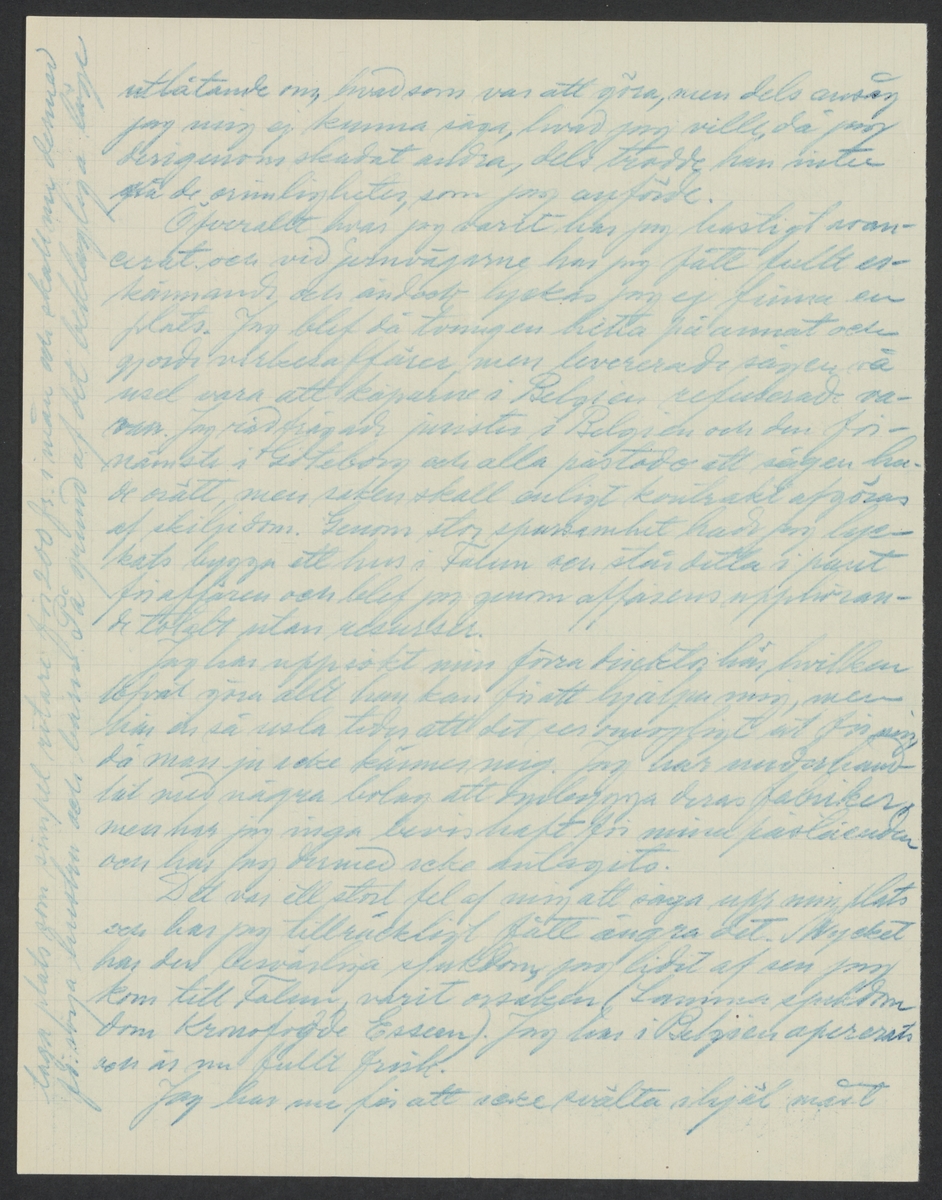 utlåtande om, hvad som var att göra, men dels ansåg
jag mig ej kunna säga, hvad jag ville, då jag
derigenom skadat andra, dels trodde han inte
på de orimligheter, som jag anförde.
Öfverallt hvar jag varit har jag hastigt avan-
cerat och vid jernvägarne har jag fått fullt er-
kännande och ändock lyckas jag ej finna en
plats. Jag blef då tvungen hitta på annat och
gjorde virkesaffärer, men levererade sågen så
usel vara att köparne i Belgien refuserade va-
ran. Jag rådfrågade jurister i Belgien och den för-
nämste i Göteborg och alla påstodo att sågen ha-
de orätt, men saken skall enligt kontrakt afgöras
af skiljedom. Genom stor sparsamhet hade jag lyc-
kats bygga ett hus i Falun och står detta i pant
för affären och blef jag genom affärens upphöran-
de totalt utan resurser.
Jag har uppsökt min förra direktör här, hvilken
lofvat göra allt han kan för att hjälpa mig, men
här är så usla tider att det är omöjligt åt för mig
då man ju icke känner mig. Jag har underhand-
lat med några bolag att ombygga deras fabriker,
men har jag inga bevis haft för mina påståenden
och har jag dermed icke antagits.
Det var ett stort fel af mig att säga upp min plats
och har jag tillräckligt fått ångra det. Mycket
har den besvärliga sjukdom, jag lidit af sen jag
kom till Falun, varit orsaken (Samma sjukdom
som Kronofogde Esseen). Jag har i Belgien opererats
och är nu fullt frisk.
Jag har nu för att icke svälta ihjäl måst
taga plats som simpel ritare för 200 frs i mån och skall med dem
försörja hustru och barn. På grund af det beklagliga läge